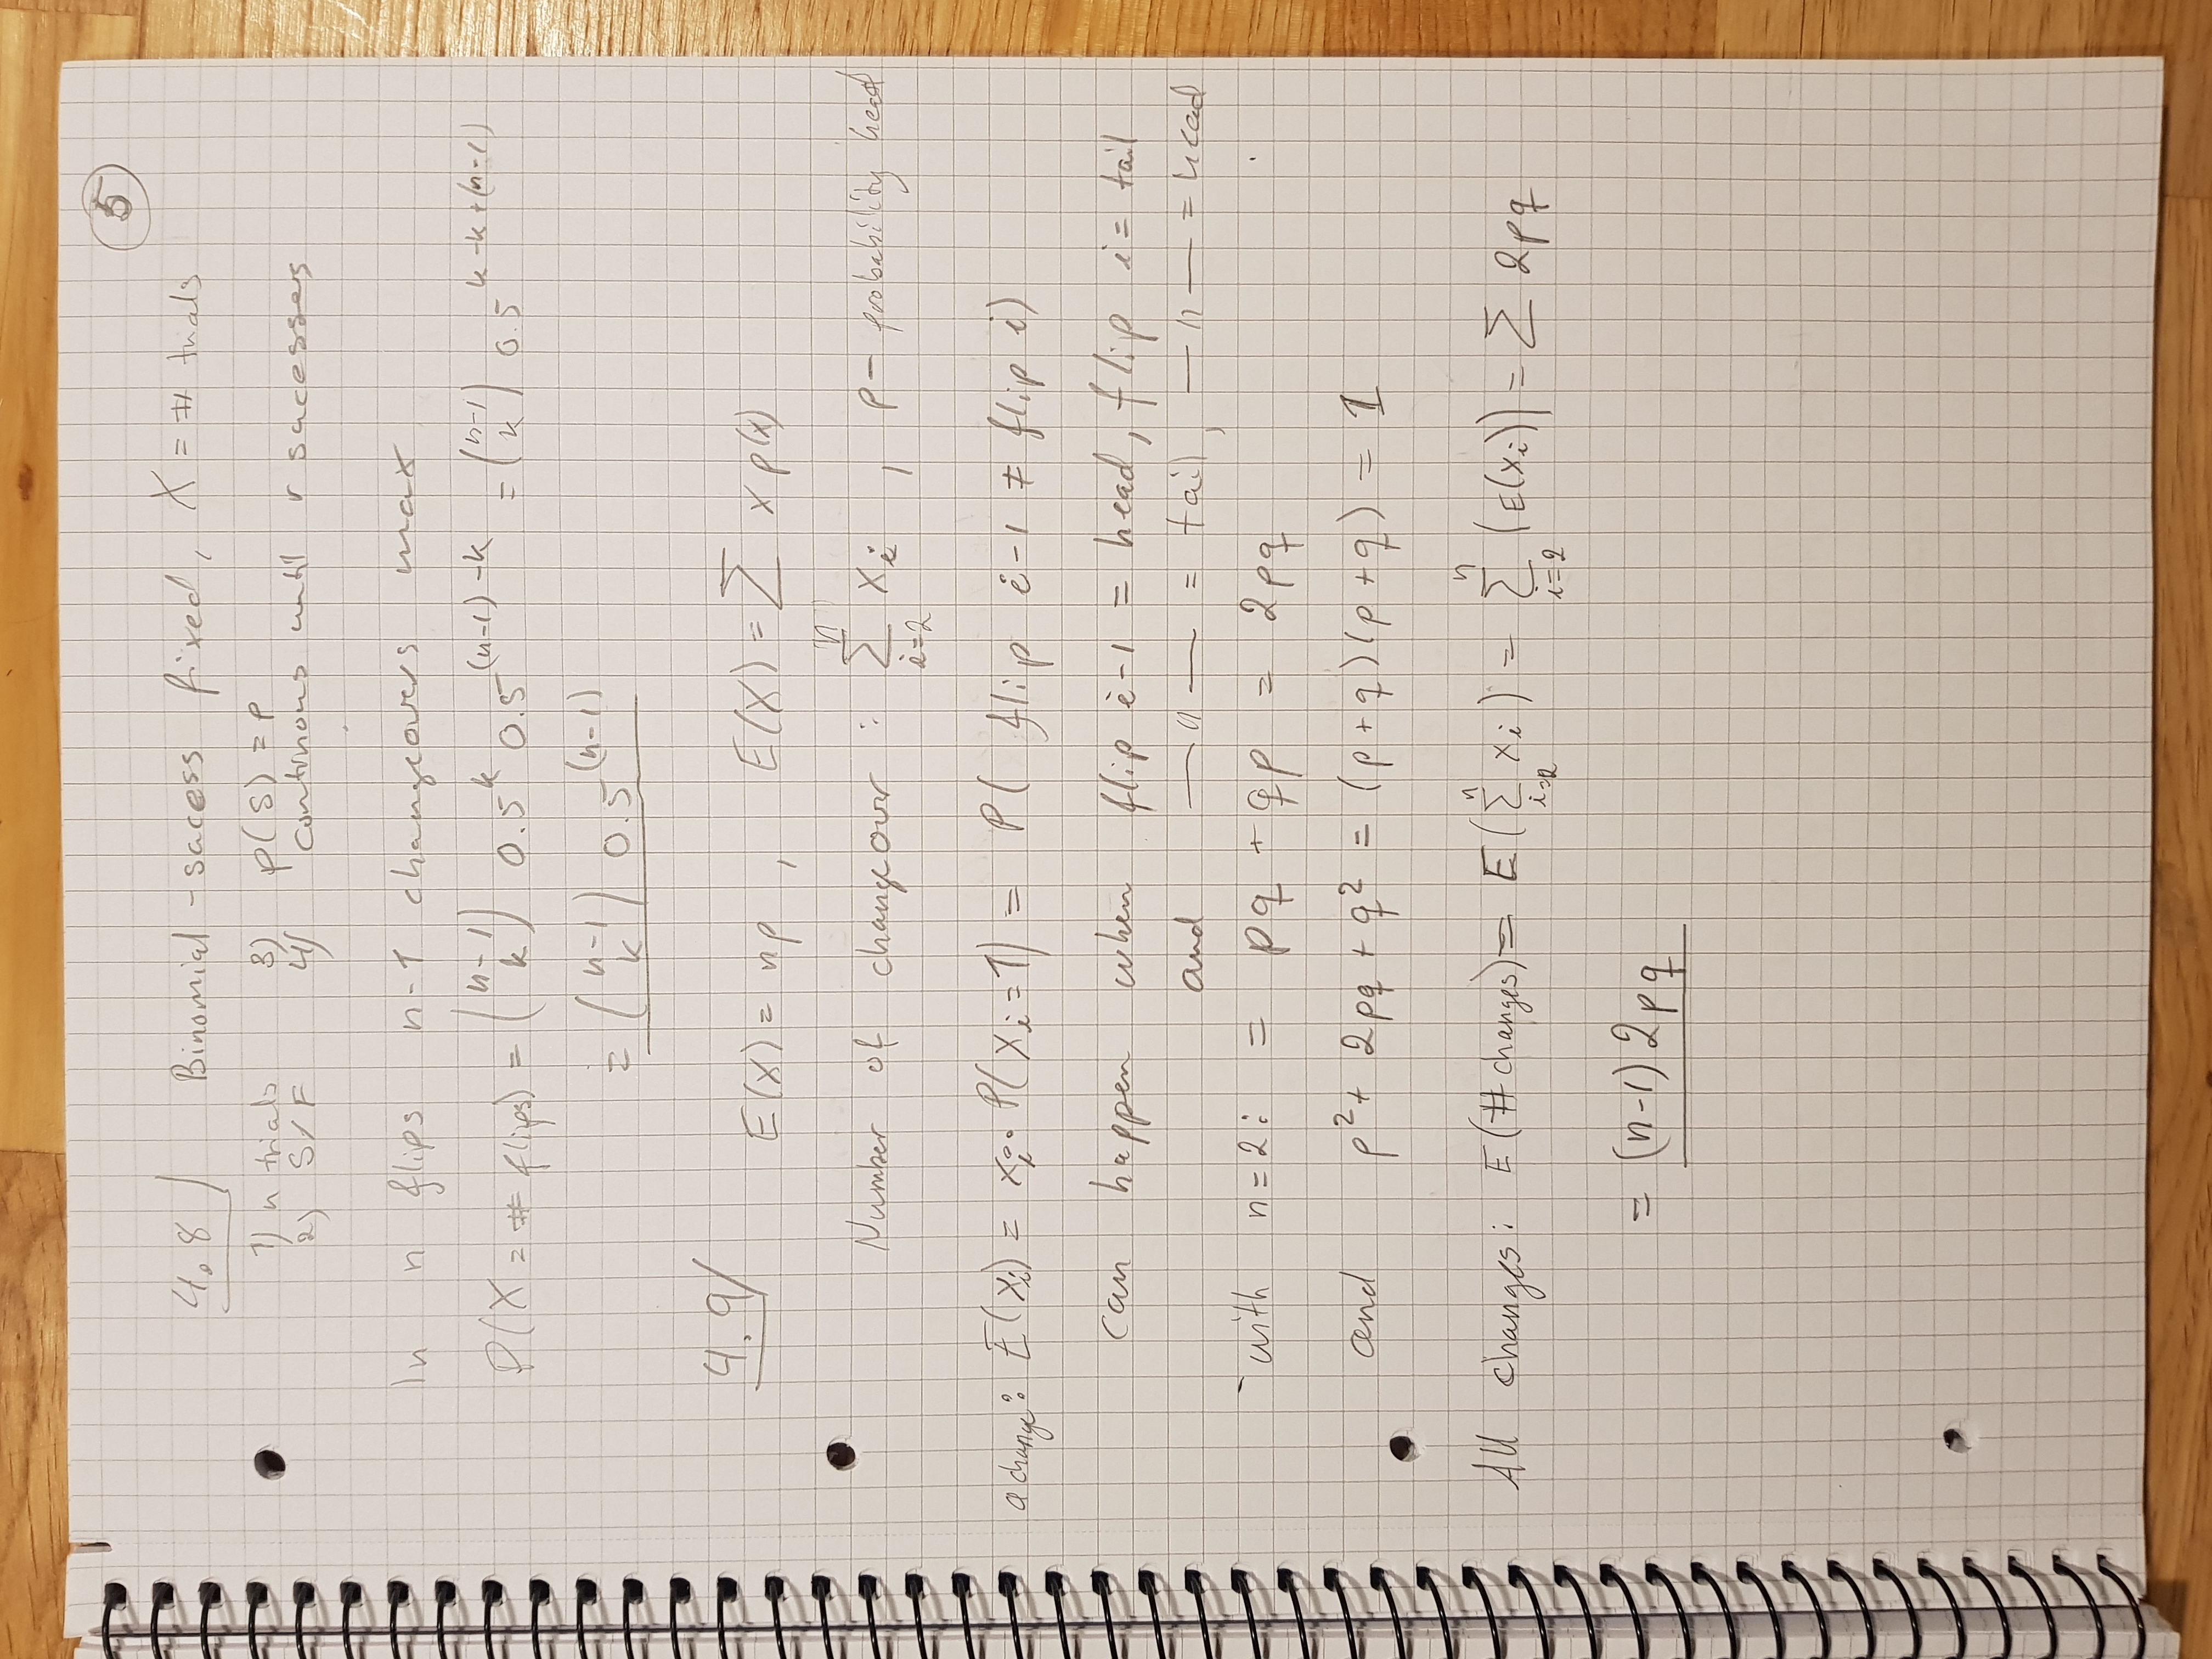 5
4.8/ Binomial - sacess fixed, X = # trials
1) n trials 3) p(S) = p
2) S/F 4) continous until r sacessers
In n flips n-1 changeovers max
P(X = # flips) = (n-1 k) 0.5^k 0.5^(n-1)-k = (n-1 k) 0.5^k-k+(n-1)
= (n-1 k) 0.5^(n-1)
4.9/
E(X) = np , E(X) = ∑ x p(x)
Number of changeover : ∑_{i=2}^{n} x_i , p - probability head
a change: E(x_i) = x_i · P(x_i = 1) = P( flip i-1 ≠ flip i)
can happen when flip i-1 = head, flip i = tail
and —"— = tail, —"— = head
with n=2: = pq + qp = 2pq
and p² + 2pq + q² = (p+q)(p+q) = 1
All changes: E(# changes) = E(∑_{i=2}^{n} x_i) = ∑_{i=2}^{n} (E(x_i)) = ∑ 2pq
= (n-1) 2pq